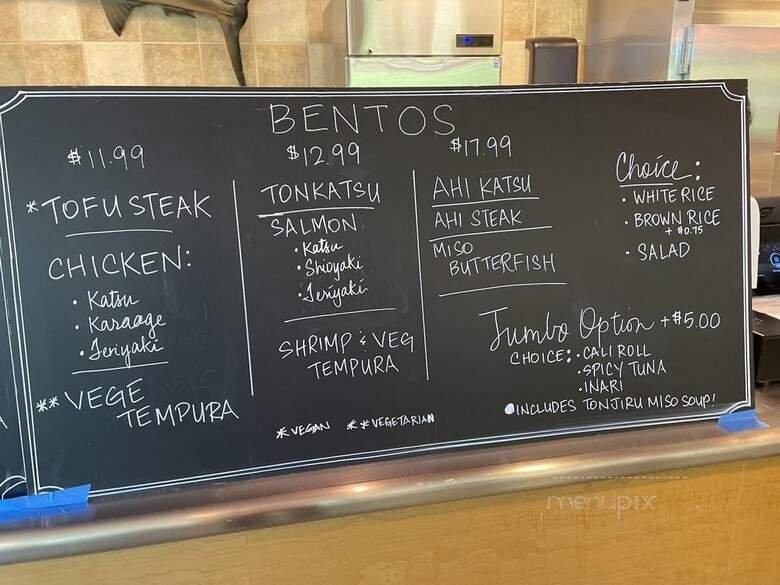 BENTOS
$11.99
* TOFU STEAK
CHICKEN:
• Katsu
• Karaage
• Teriyaki
** VEGE
TEMPURA
$12.99
TONKATSU
SALMON
• Katsu
• Shioyaki
• Teriyaki
SHRIMP & VEG
TEMPURA
* VEGAN ** VEGETARIAN
$17.99
AHI KATSU
AHI STEAK
MISO
BUTTERFISH
Choice:
• WHITE RICE
• BROWN RICE
+ $0.75
• SALAD
Jumbo Option + $5.00
CHOICE: • CALI ROLL
• SPICY TUNA
• INARI
• INCLUDES TONJIRU MISO SOUP!
menupix